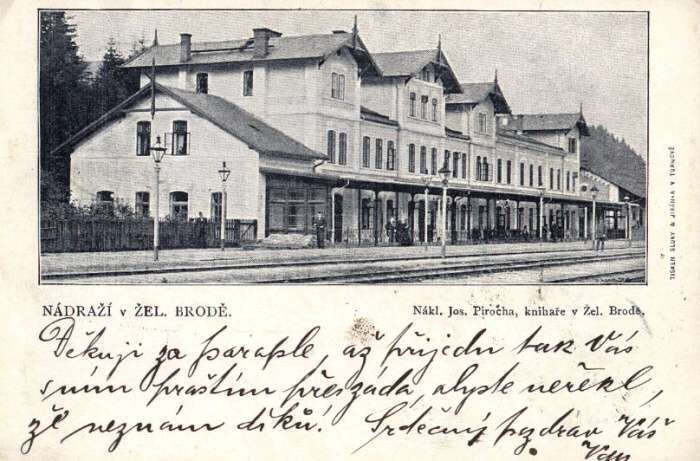 NÁDRAŽÍ v ŽEL. BRODĚ.
Nákl. Jos. Pirocha, knihaře v Žel. Brodě.
TISKEM SLUKY & JIRÁNKA V TURNOVĚ
Děkuji za paraple, až přijedu tak Vás
s ním praštím přes záda, abyste neřekl,
že neznám díků! Srdečný pozdrav Váš